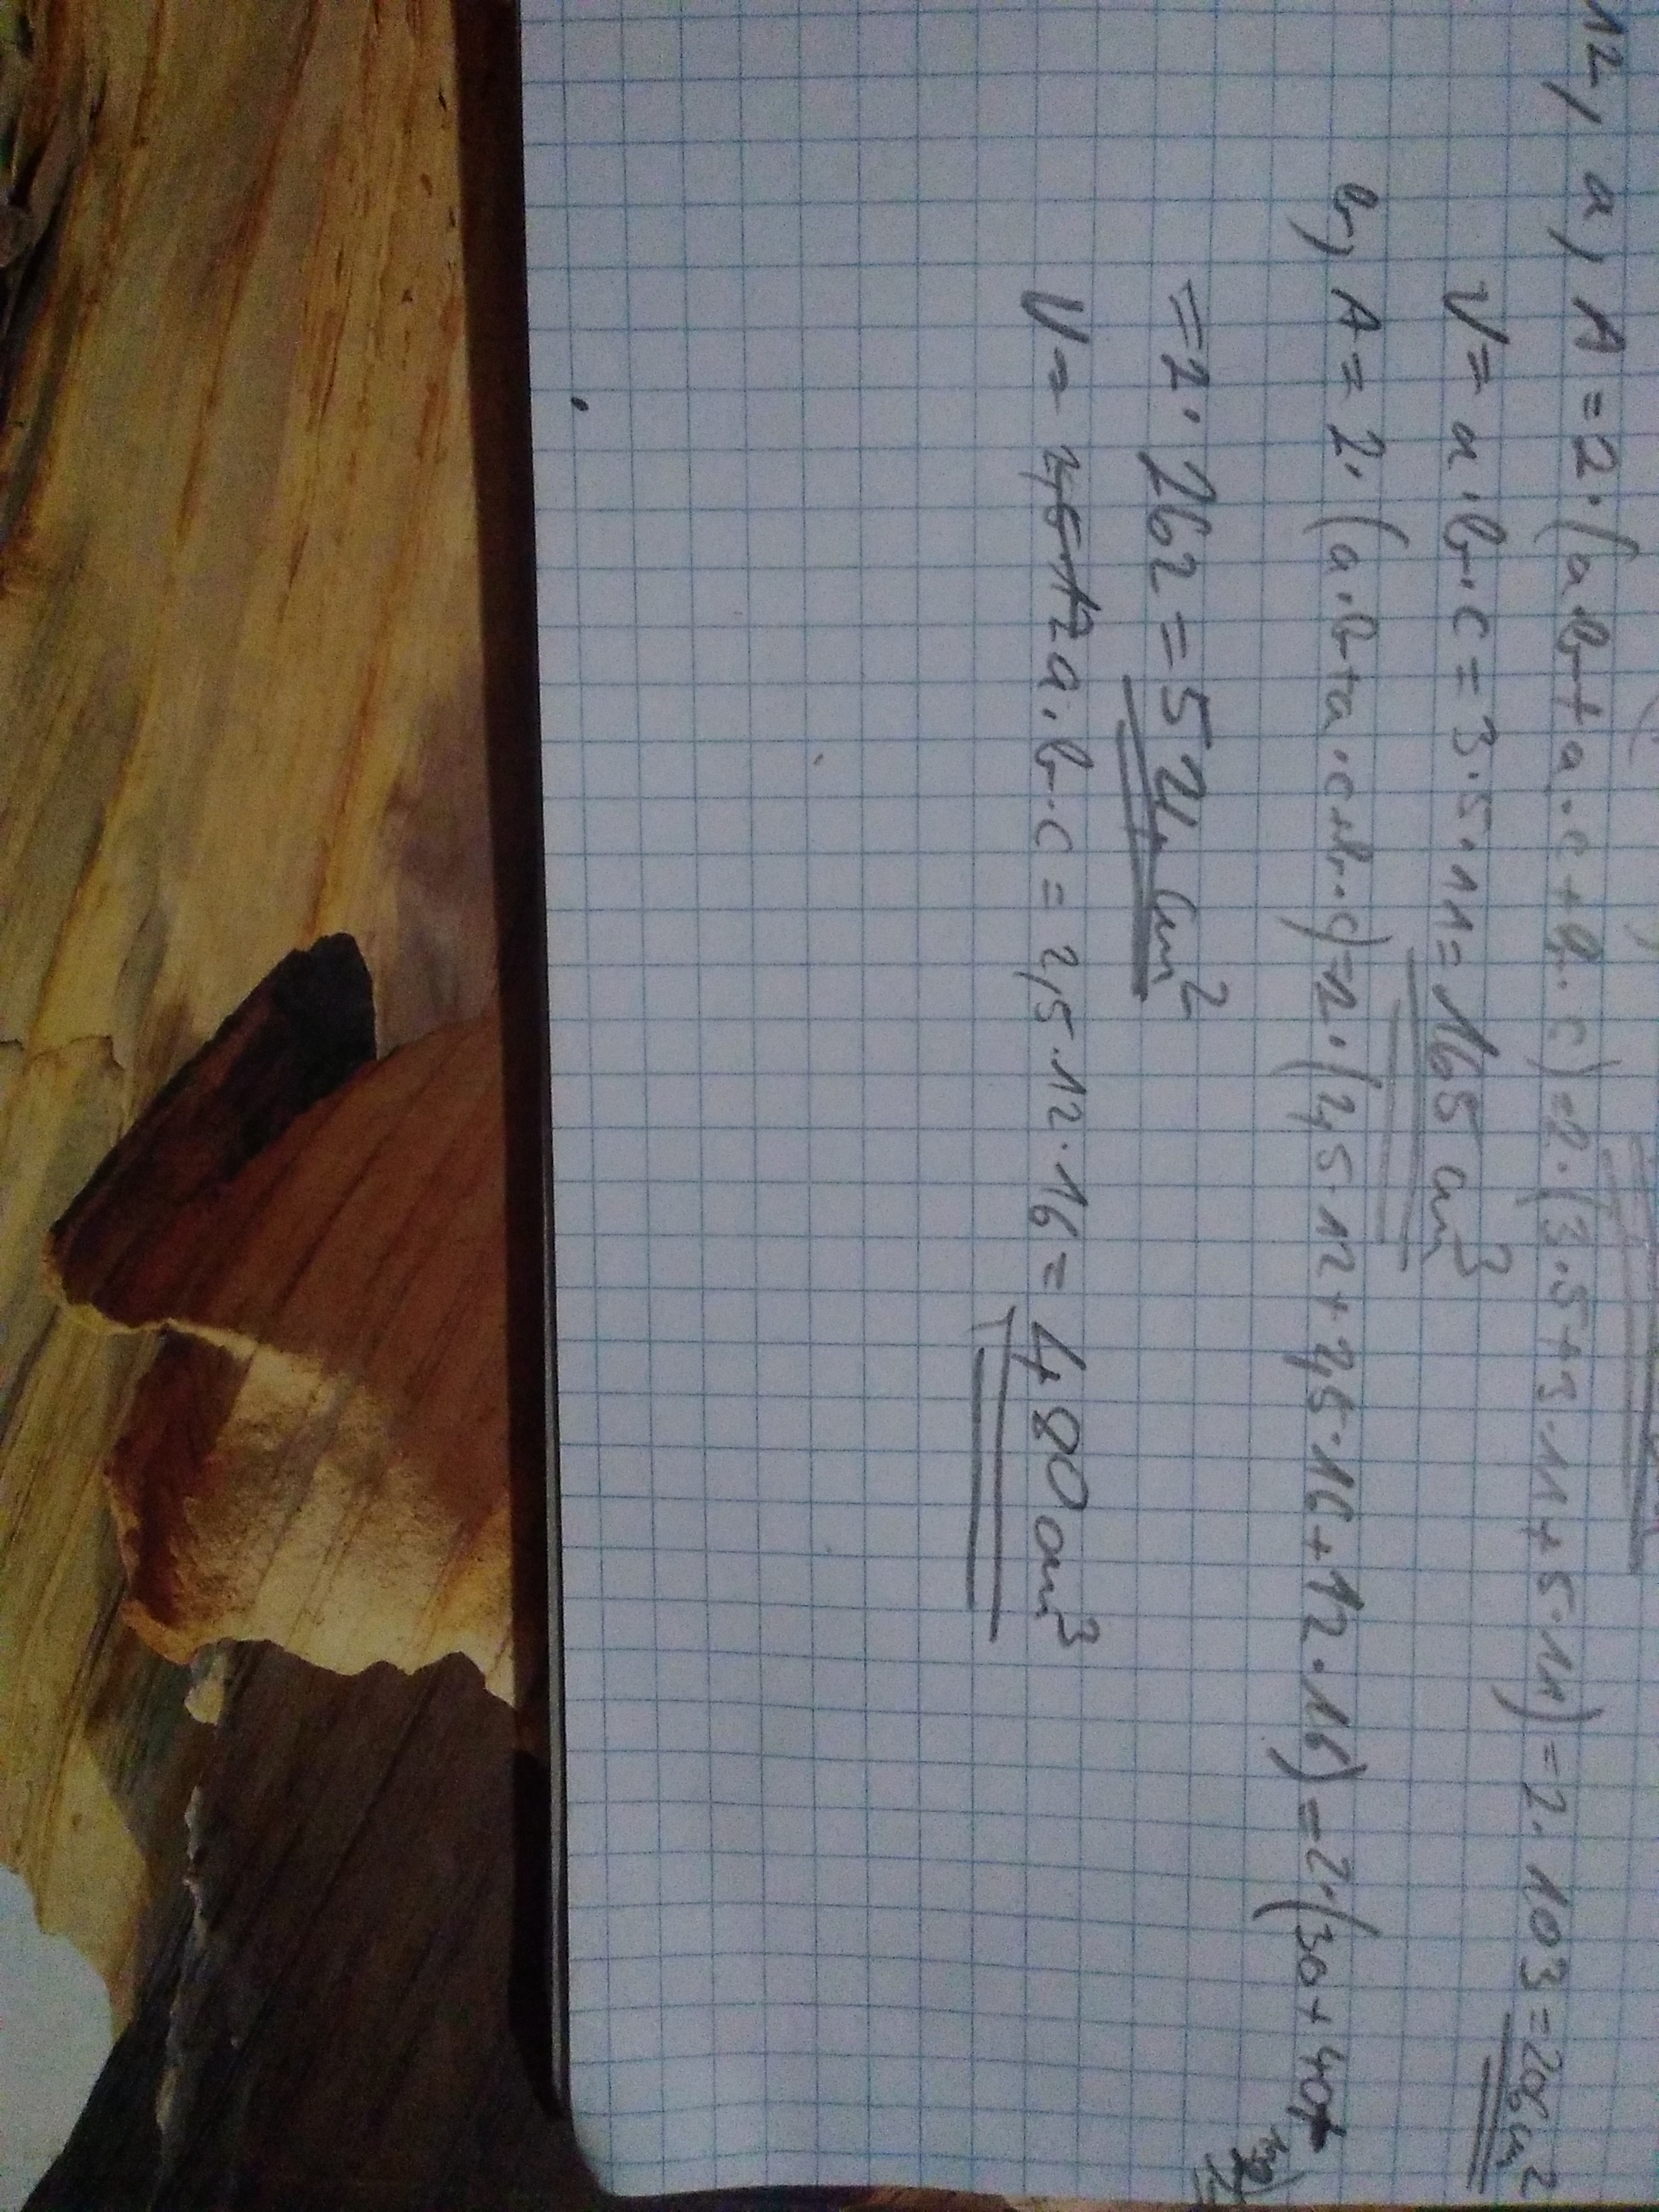 12, a) A = 2·(a·b+a·c+b·c)=2·(3·5+3·11+5·11) = 2·103 = 206 cm²
V = a·b·c = 3·5·11 = 165 cm³
b) A = 2·(a·b+a·c+b·c)=2·(2,5·12+2,5·16+12·16) = 2·(30+40+192)
= 2·262 = 524 cm²
V = a·b·c = 2,5·12·16 = 480 cm³